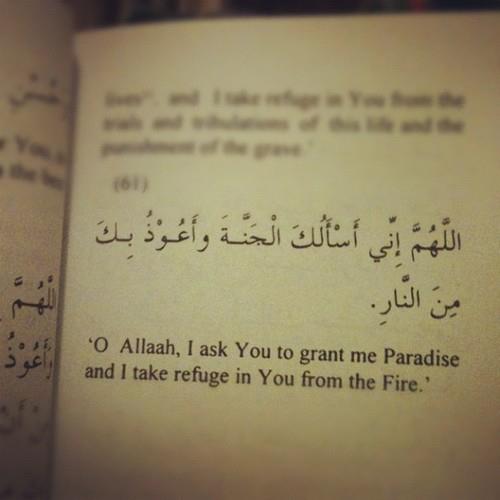 lives", and I take refuge in You from the
trials and tribulations of this life and the
punishment of the grave.'
(61)
اللَّهُمَّ إِنِّي أَسْأَلُكَ الْجَنَّةَ وأَعُوْذُ بِكَ
مِنَ النَّارِ.
'O Allaah, I ask You to grant me Paradise
and I take refuge in You from the Fire.'